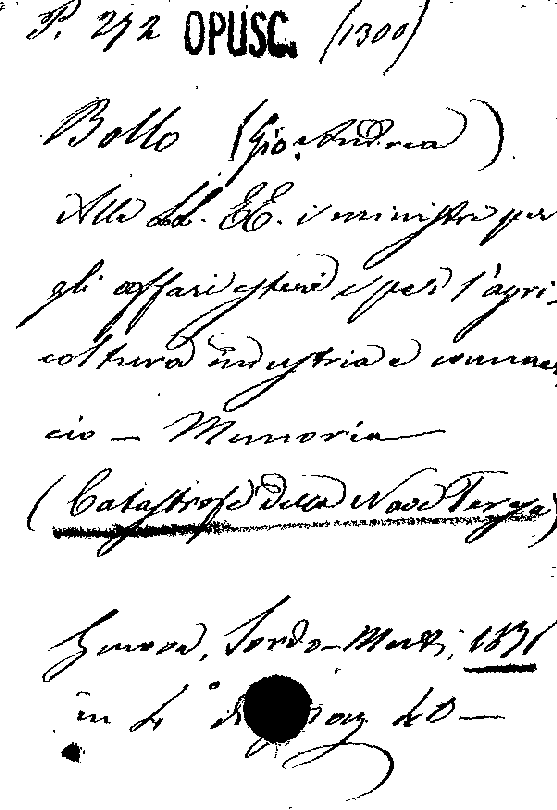 P. 272 OPUSC. (1300)
Bollo (Gio. Andrea)
Alle LL. EE. i ministri per
gli affari esteri e per l'agri-
coltura industria e commer
cio - Memoria
(Catastrofe della Nave Teresa)
Genova, Sordo-Muti, 1871
in 4° di pag 40 -